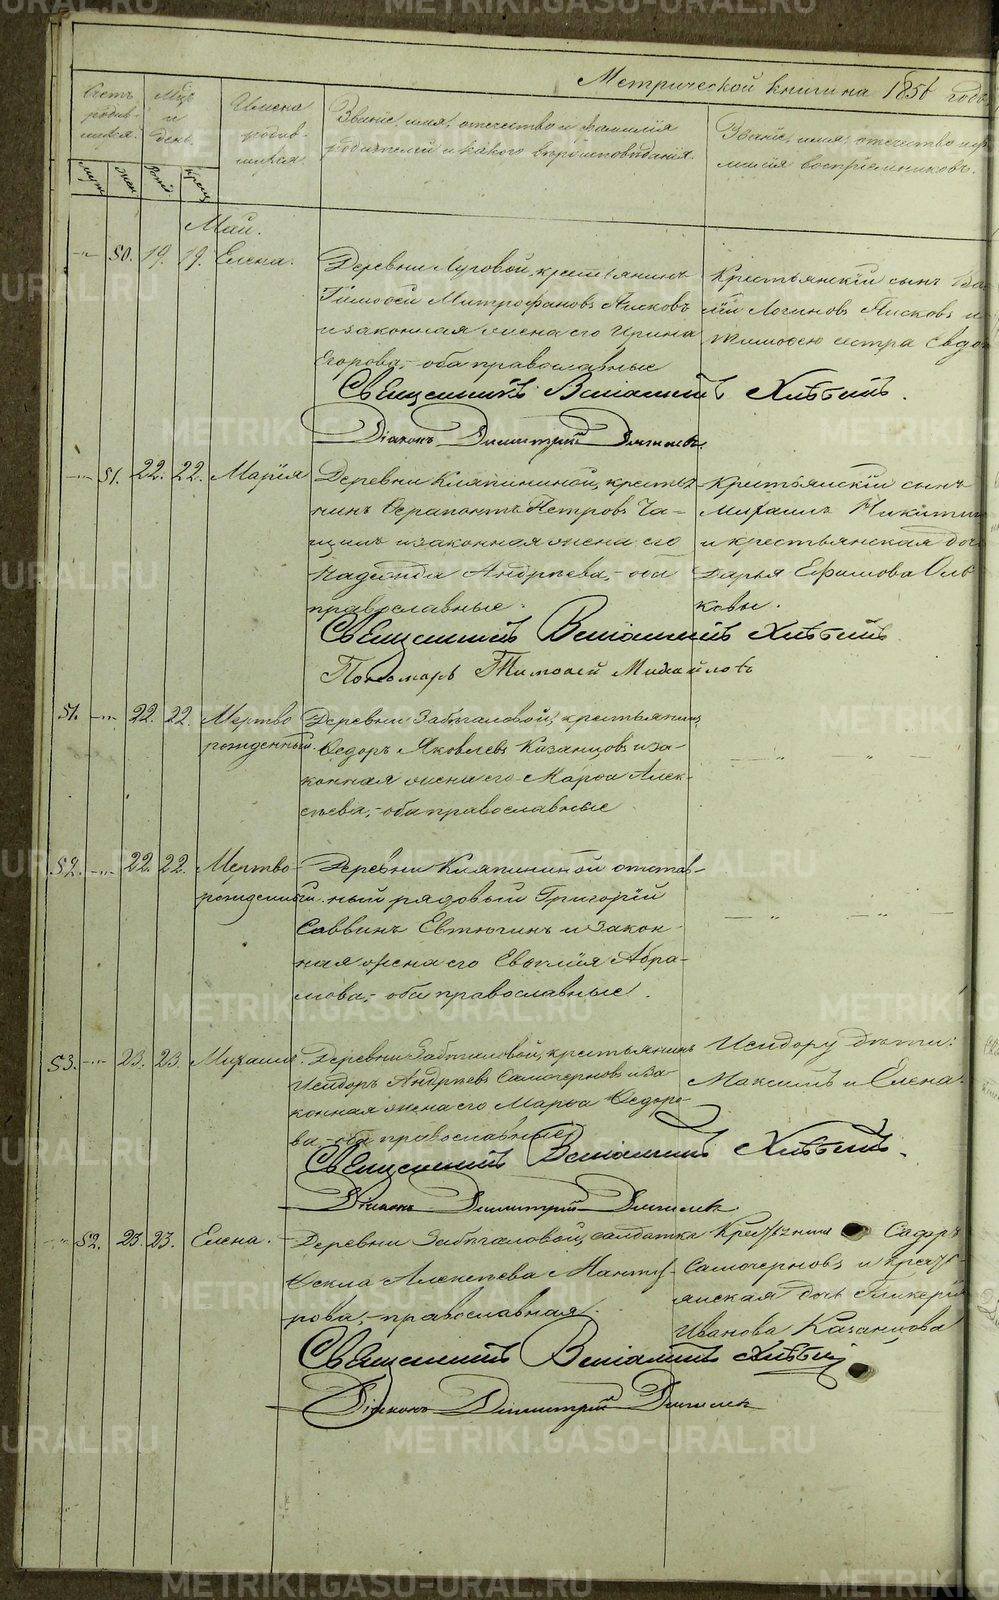 Метрической книги на 1856 годъ
Счетъ родив-шихся.
Мѣс. и день.
Имена родив-шихся.
Званіе, имя, отечество и фамилія
родителей и какого вѣроисповѣданія.
Званіе, имя, отечество и фа-
милія воспріемниковъ.
муж. жен. рожд. крещ.
Май.
50. 19. 19. Елена.
Деревни Луговой, крестьянинъ
Тимоѳей Митрофановъ Писковъ
и законная жена его Ирина
Егорова, оба православные
Крестьянскій сынъ Ва-
лій Логиновъ Писковъ и
Тимоѳею сестра Евдо
Священникъ Веніаминъ Хлѣбинъ.
Діаконъ Димитрій Дягилевъ.
51. 22. 22. Марія
Деревни Кляпининой, крестья-
нинъ Ѳерапонтъ Петровъ Ча-
щинъ и законная жена его
Надежда Андреева, оба
православные.
Крестьянскій сынъ
Михаилъ Никитинъ
и крестьянская дочь
Дарья Ефимова Оль
ковы.
Священникъ Веніаминъ Хлѣбинъ.
Пономарь Тимоѳей Михайловъ
51. 22. 22. Мертво
рожденный.
Деревни Забѣгаловой, крестьянинъ
Ѳедоръ Яковлевъ Казанцовъ и за-
конная жена его Марѳа Алек-
сѣева, оба православные
52. 22. 22. Мертво
рожденный.
Деревни Кляпининой отстав-
ный рядовый Григорій
Саввинъ Евтюгинъ и закон-
ная жена его Евѳимія Абра-
мова, оба православные.
53. 23. 23. Михаилъ.
Деревни Забѣгаловой, крестьянинъ
Исидоръ Андреевъ Самочерновъ и за-
конная жена его Марѳа Ѳедоро-
ва, оба православные
Исидору дѣти:
Максимъ и Елена.
Священникъ Веніаминъ Хлѣбинъ.
Діаконъ Димитрій Дягилевъ
52. 23. 23. Елена.
Деревни Забѣгаловой, солдатка
Ѳекла Алексѣева Манту-
рова, православная.
Крестьянинъ Сидоръ
Самочерновъ и крестьян-
янская дочь Гликерія
Иванова Казанцова
Священникъ Веніаминъ Хлѣбинъ
Діаконъ Димитрій Дягилевъ
METRIKI.GASO-URAL.RU